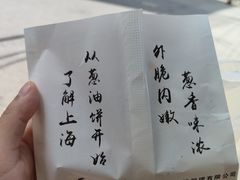 葱香味浓
外脆内嫩
从葱油饼开始
了解上海
有限公司